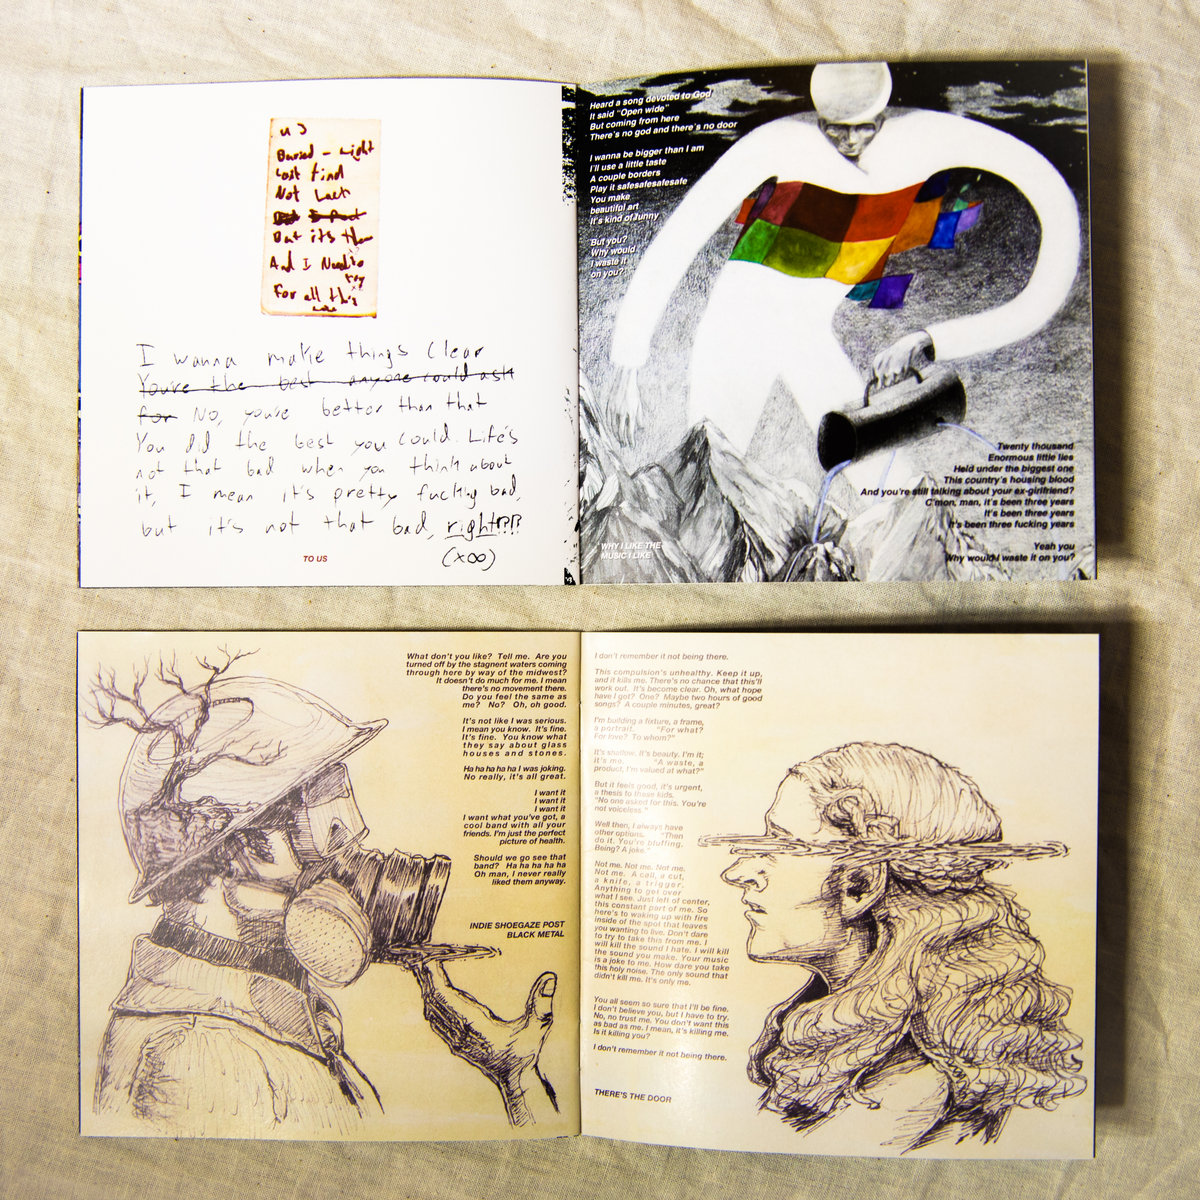 Buried - Light
Last find
Not Lack
But its then
And I Need to
try
For all this
I wanna make things clear
You're the best anyone could ask
for No, you're better than that
You did the best you could. Life's
not that bad when you think about
it, I mean it's pretty fucking bad,
but it's not that bad, right???
(x∞)
TO US
Heard a song devoted to God
It said "Open wide"
But coming from here
There's no god and there's no door
I wanna be bigger than I am
I'll use a little taste
A couple borders
Play it safesafesafesafe
You make
beautiful art
It's kind of funny
But you?
Why would
I waste it
on you?
Twenty thousand
Enormous little lies
Held under the biggest one
This country's housing blood
And you're still talking about your ex-girlfriend?
C'mon, man, it's been three years
It's been three years
It's been three fucking years
Yeah you
Why would I waste it on you?
WHY I LIKE THE
MUSIC I LIKE
What don't you like? Tell me. Are you
turned off by the stagnent waters coming
through here by way of the midwest?
It doesn't do much for me. I mean
there's no movement there.
Do you feel the same as
me? No? Oh, oh good.
It's not like I was serious.
I mean you know. It's fine.
It's fine. You know what
they say about glass
houses and stones.
Ha ha ha ha ha I was joking.
No really, it's all great.
I want it
I want it
I want it
I want what you've got, a
cool band with all your
friends. I'm just the perfect
picture of health.
Should we go see that
band? Ha ha ha ha ha
Oh man, I never really
liked them anyway.
INDIE SHOEGAZE POST
BLACK METAL
I don't remember it not being there.
This compulsion's unhealthy. Keep it up,
and it kills me. There's no chance that this'll
work out. It's become clear. Oh, what hope
have I got? One? Maybe two hours of good
songs? A couple minutes, great?
I'm building a fixture, a frame,
a portrait. "For what?
For love? To whom?"
It's shallow. It's beauty. I'm it;
it's me. "A waste, a
product, I'm valued at what?"
But it feels good, it's urgent,
a thesis to these kids.
"No one asked for this. You're
not voiceless."
Well then, I always have
other options. "Then
do it. You're bluffing.
Being? A joke."
Not me. Not me. Not me.
Not me. A call, a cut,
a knife, a trigger.
Anything to get over
what I see. Just left of center,
this constant part of me. So
here's to waking up with fire
inside of the spot that leaves
you wanting to live. Don't dare
to try to take this from me. I
will kill the sound I hate. I will kill
the sound you make. Your music
is a joke to me. How dare you take
this holy noise. The only sound that
didn't kill me. It's only me.
You all seem so sure that I'll be fine.
I don't believe you, but I have to try.
No, no trust me. You don't want this
as bad as me. I mean, it's killing me.
Is it killing you?
I don't remember it not being there.
THERE'S THE DOOR